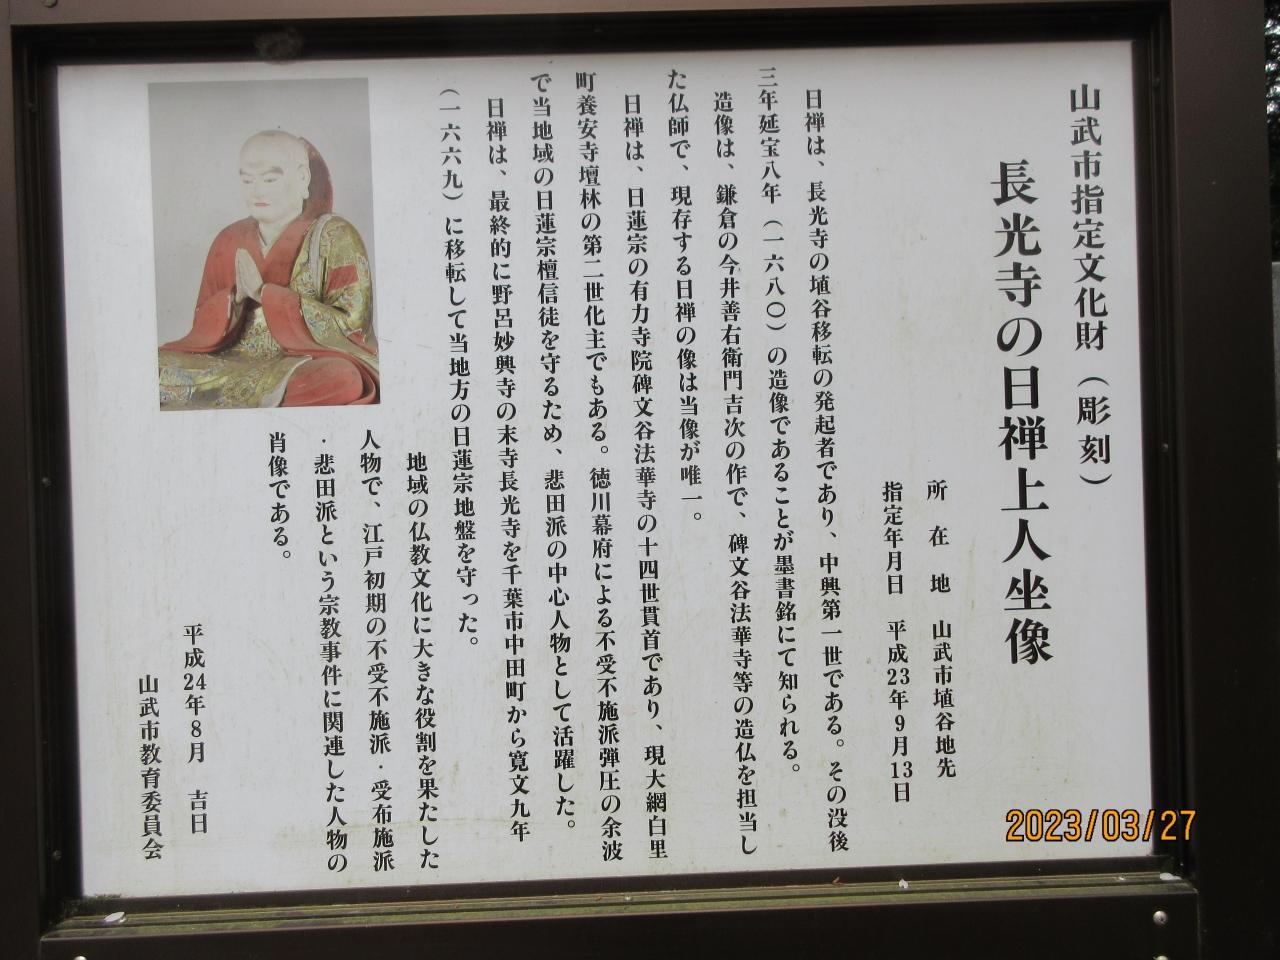 山武市指定文化財（彫刻）
長光寺の日禅上人坐像
所在地　山武市埴谷地先
指定年月日　平成23年９月13日
日禅は、長光寺の埴谷移転の発起者であり、中興第一世である。その没後
三年延宝八年（一六八〇）の造像であることが墨書銘にて知られる。
造像は、鎌倉の今井善右衛門吉次の作で、碑文谷法華寺等の造仏を担当し
た仏師で、現存する日禅の像は当像が唯一。
日禅は、日蓮宗の有力寺院碑文谷法華寺の十四世貫首であり、現大網白里
町養安寺壇林の第二世化主でもある。徳川幕府による不受不施派弾圧の余波
で当地域の日蓮宗檀信徒を守るため、悲田派の中心人物として活躍した。
日禅は、最終的に野呂妙興寺の末寺長光寺を千葉市中田町から寛文九年
（一六六九）に移転して当地方の日蓮宗地盤を守った。
地域の仏教文化に大きな役割を果たした
人物で、江戸初期の不受不施派・受布施派
・悲田派という宗教事件に関連した人物の
肖像である。
平成24年８月　吉日
山武市教育委員会
2023/03/27